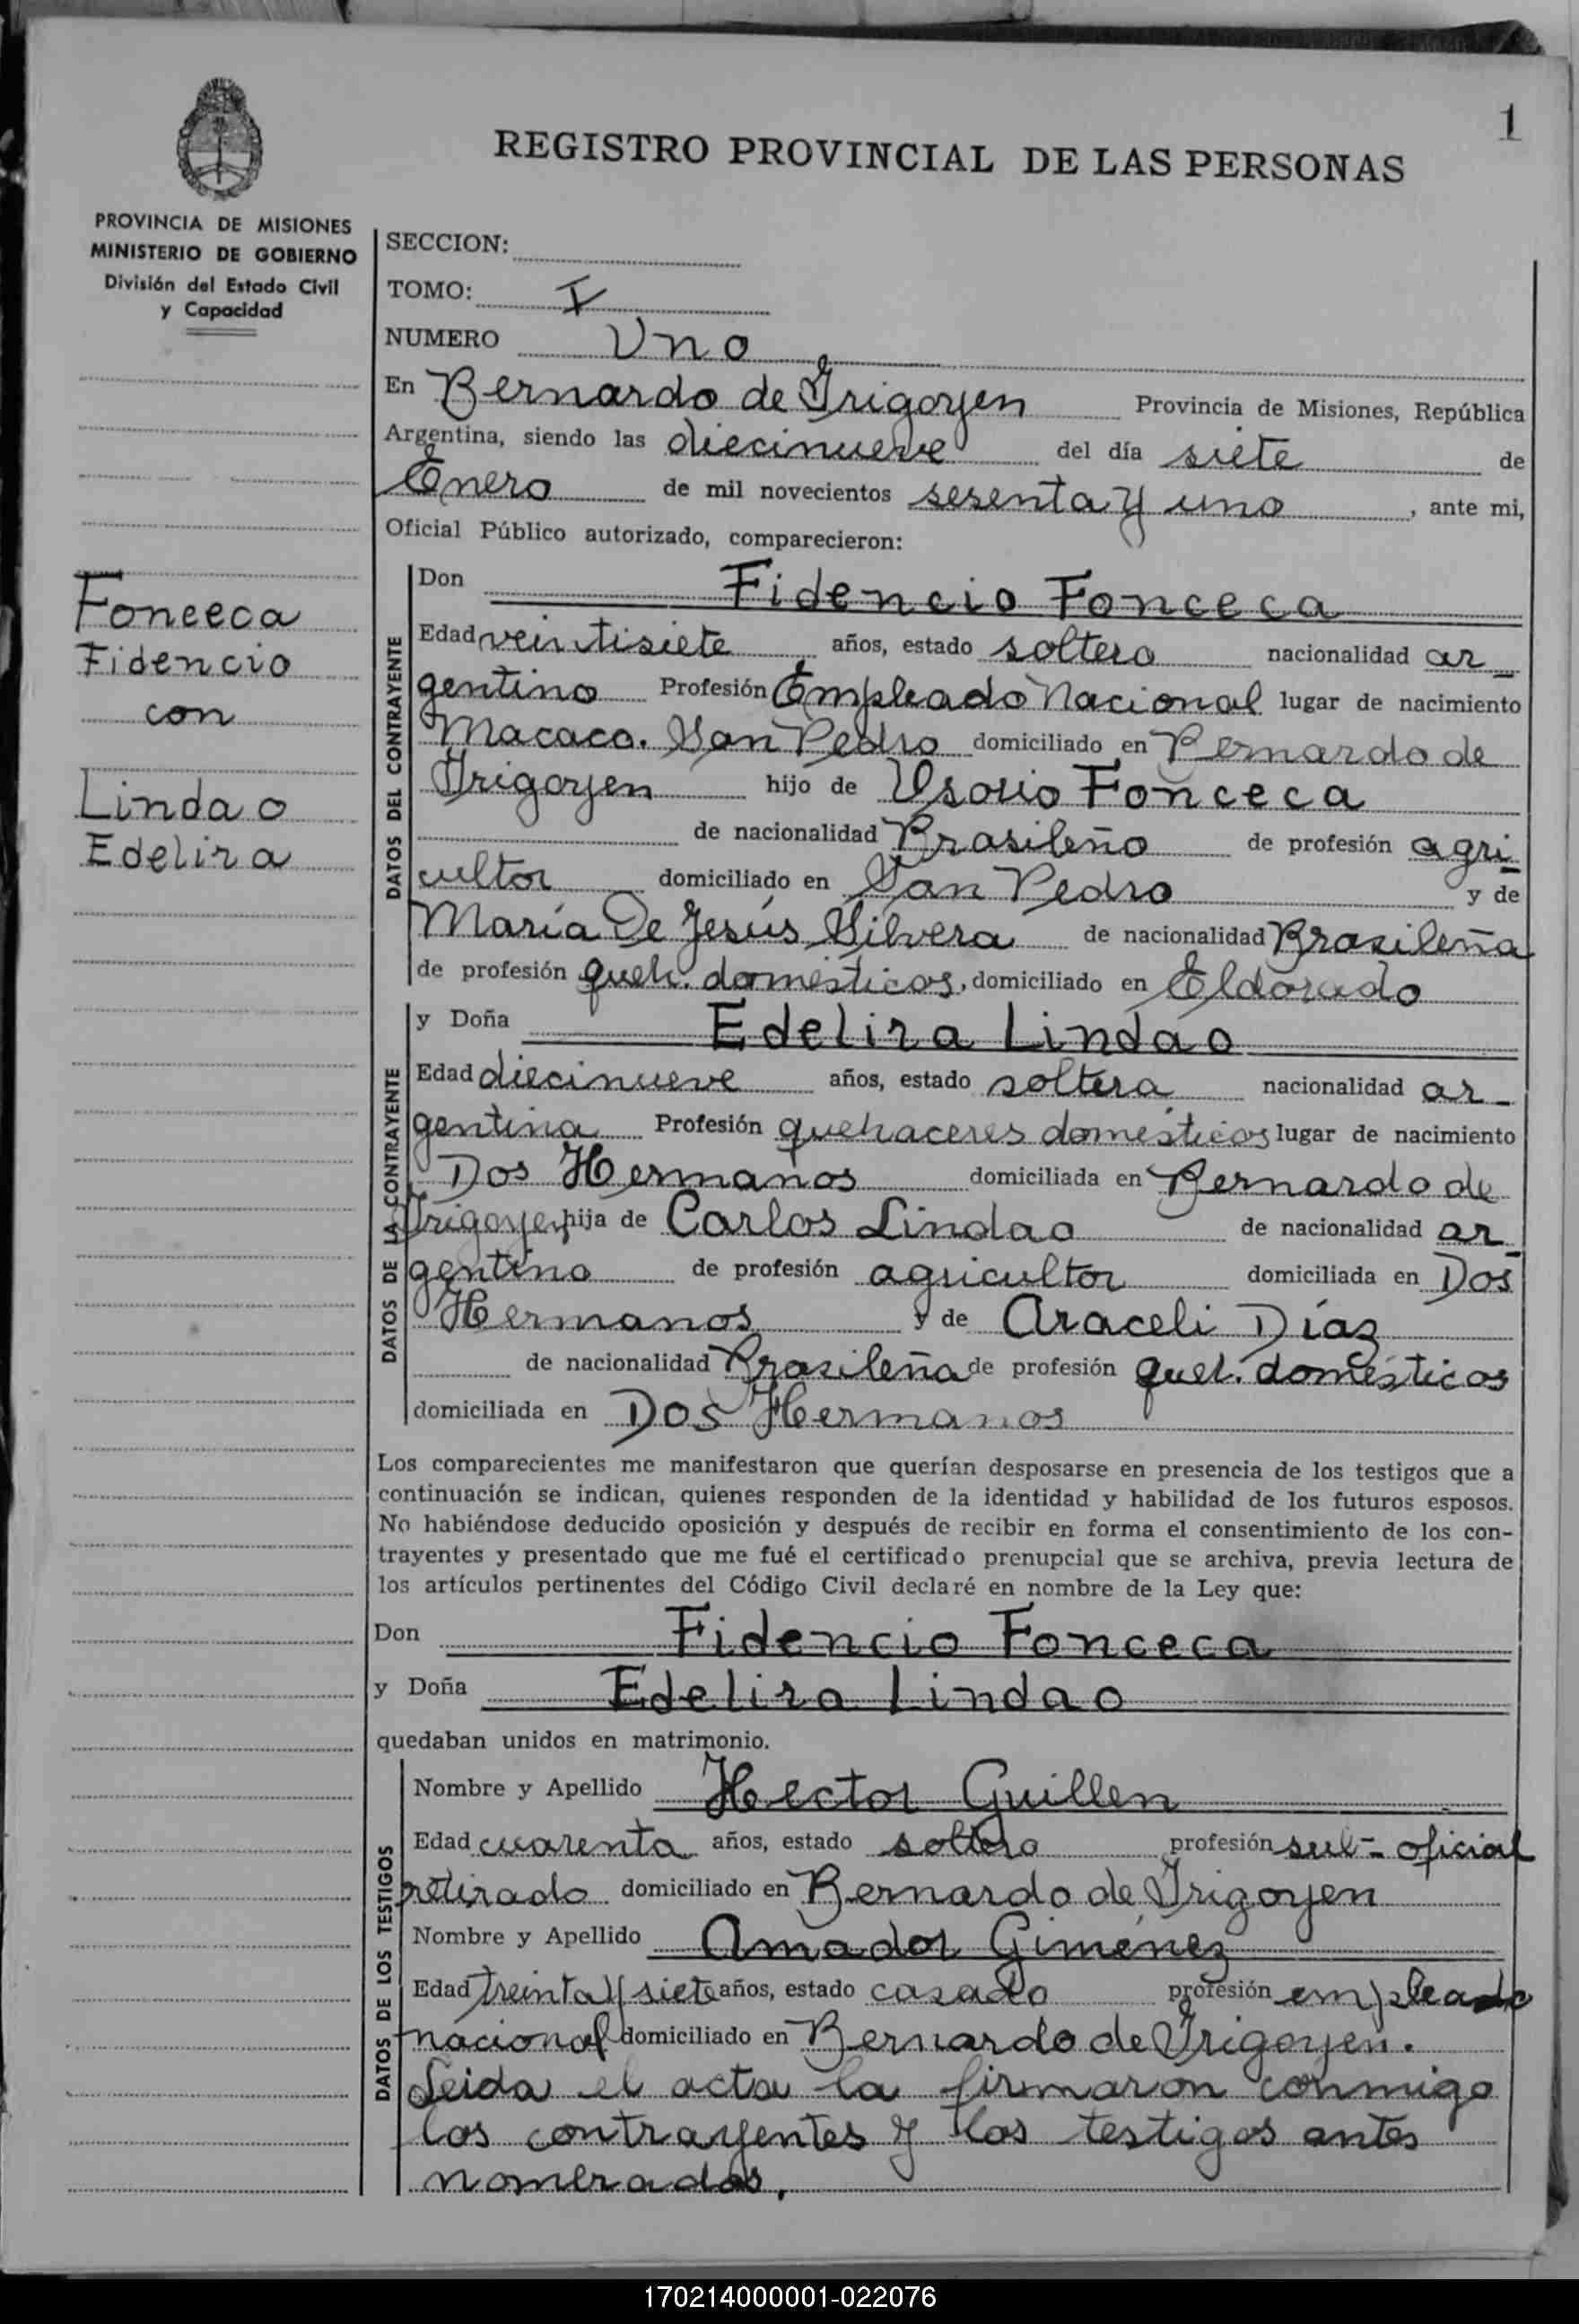 1
REGISTRO PROVINCIAL DE LAS PERSONAS
PROVINCIA DE MISIONES
MINISTERIO DE GOBIERNO
División del Estado Civil
y Capacidad
Fonceca
Fidencio
con
Lindao
Edelira
SECCION:
TOMO: I
NUMERO Uno
En Bernardo de Irigoyen Provincia de Misiones, República
Argentina, siendo las diecinueve del día siete de
Enero de mil novecientos sesenta y uno, ante mi,
Oficial Público autorizado, comparecieron:
DATOS DEL CONTRAYENTE
Don Fidencio Fonceca
Edad veintisiete años, estado soltero nacionalidad ar-
gentino Profesión Empleado Nacional lugar de nacimiento
Macaco. San Pedro domiciliado en Bernardo de
Irigoyen hijo de Fonceca
de nacionalidad Brasileño de profesión agri-
cultor domiciliado en San Pedro y de
María De Jesús Silvera de nacionalidad Brasileña
de profesión queh. domésticos, domiciliado en Eldorado
DATOS DE LA CONTRAYENTE
y Doña Edelira Lindao
Edad diecinueve años, estado soltera nacionalidad ar-
gentina Profesión quehaceres domésticos lugar de nacimiento
Dos Hermanos domiciliada en Bernardo de
Irigoyen hija de Carlos Lindao de nacionalidad ar-
gentino de profesión agricultor domiciliada en Dos
Hermanos y de Araceli Díaz
de nacionalidad Brasileña de profesión queh. domésticos
domiciliada en Dos Hermanos
Los comparecientes me manifestaron que querían desposarse en presencia de los testigos que a
continuación se indican, quienes responden de la identidad y habilidad de los futuros esposos.
No habiéndose deducido oposición y después de recibir en forma el consentimiento de los con-
trayentes y presentado que me fué el certificado prenupcial que se archiva, previa lectura de
los artículos pertinentes del Código Civil declaré en nombre de la Ley que:
Don Fidencio Fonceca
y Doña Edelira Lindao
quedaban unidos en matrimonio.
DATOS DE LOS TESTIGOS
Nombre y Apellido Hector Guillen
Edad cuarenta años, estado soltero profesión sub-oficial
retirado domiciliado en Bernardo de Irigoyen
Nombre y Apellido Amador Giménez
Edad treinta y siete años, estado casado profesión empleado
nacional domiciliado en Bernardo de Irigoyen.
Leida el acta la firmaron conmigo
los contrayentes y los testigos antes
nombrados.
170214000001-022076